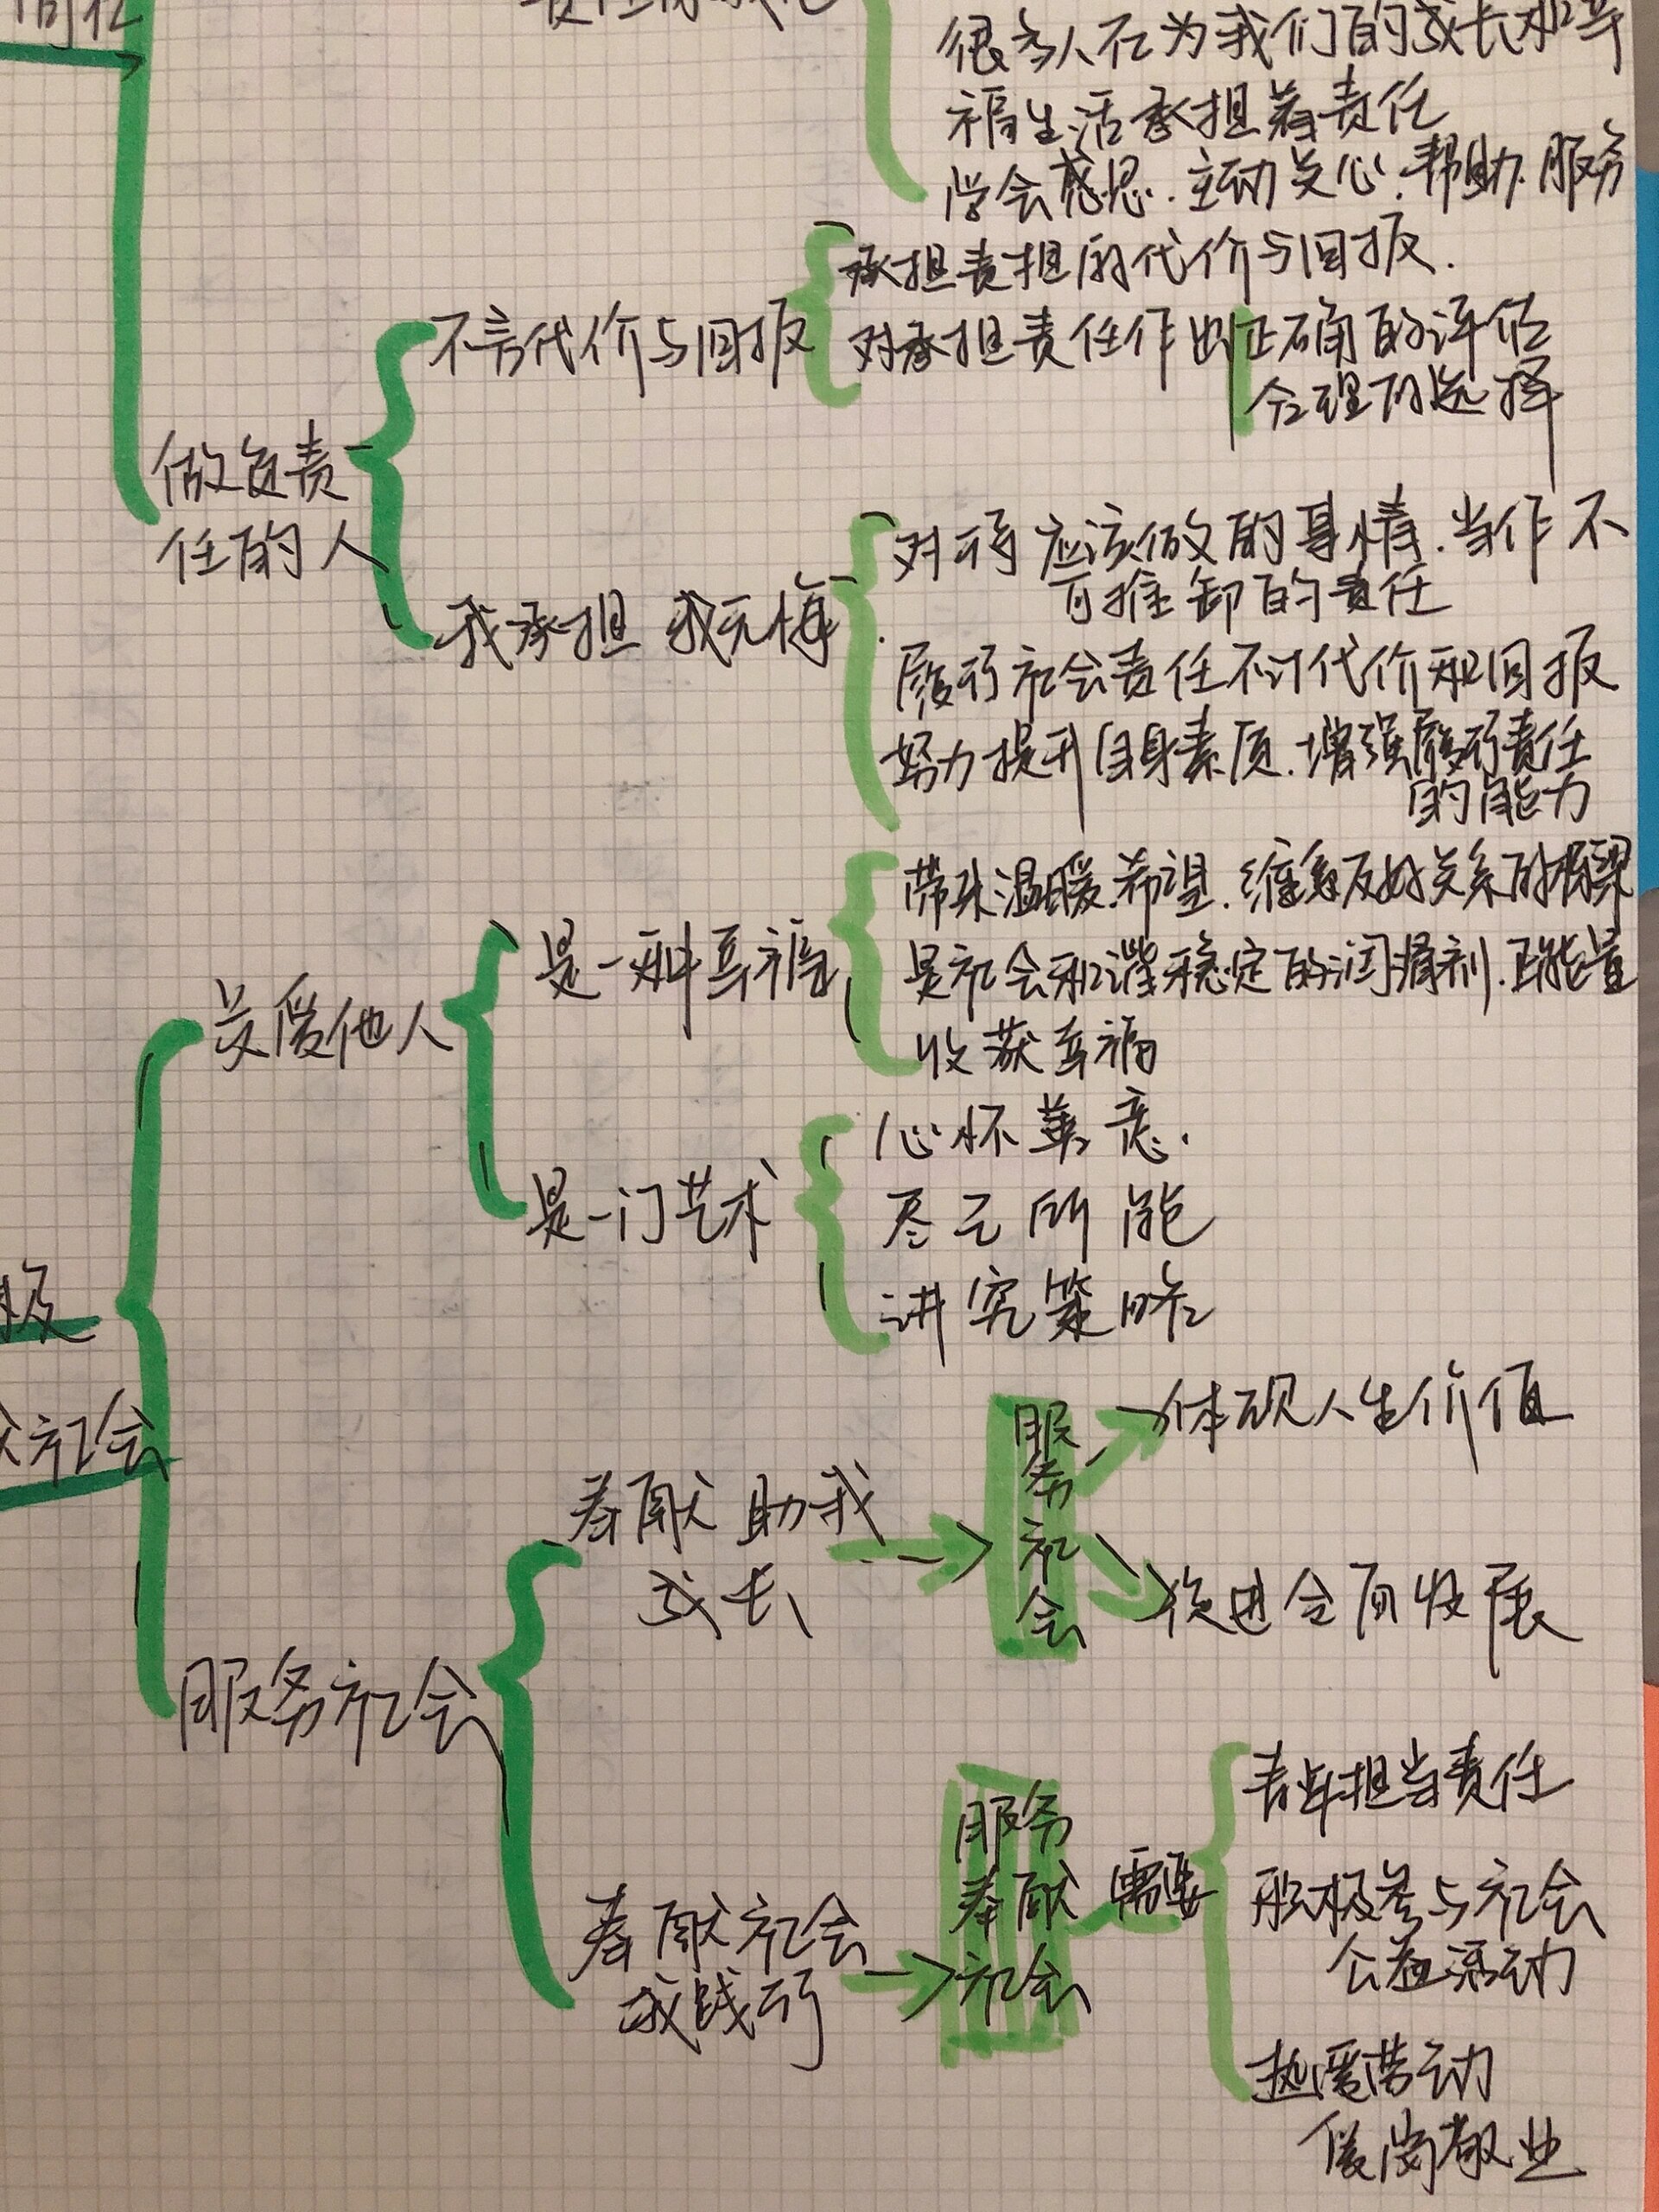 很多人在为我们的成长和幸
福生活承担着责任
学会感恩.主动关心.帮助.服务
承担责担的代价与回报.
不言代价与回报
对承担责任作出正确的评估
合理的选择
做负责
任的人
对待应该做的事情.当作不
可推卸的责任
我承担 我无悔
履行社会责任不计代价和回报
努力提升自身素质.增强履行责任
的能力
带来温暖.希望.维系友好关系的桥梁
是一种幸福
是社会和谐稳定的润滑剂.正能量
关爱他人
收获幸福
心怀善意.
是一门艺术
尽己所能
讲究策略
社会
服务社会
体现人生价值
奉献助我
成长
促进全面发展
服务社会
青年担当责任
服务
奉献
社会
需要
积极参与社会
公益活动
奉献社会
我践行
热爱劳动
爱岗敬业